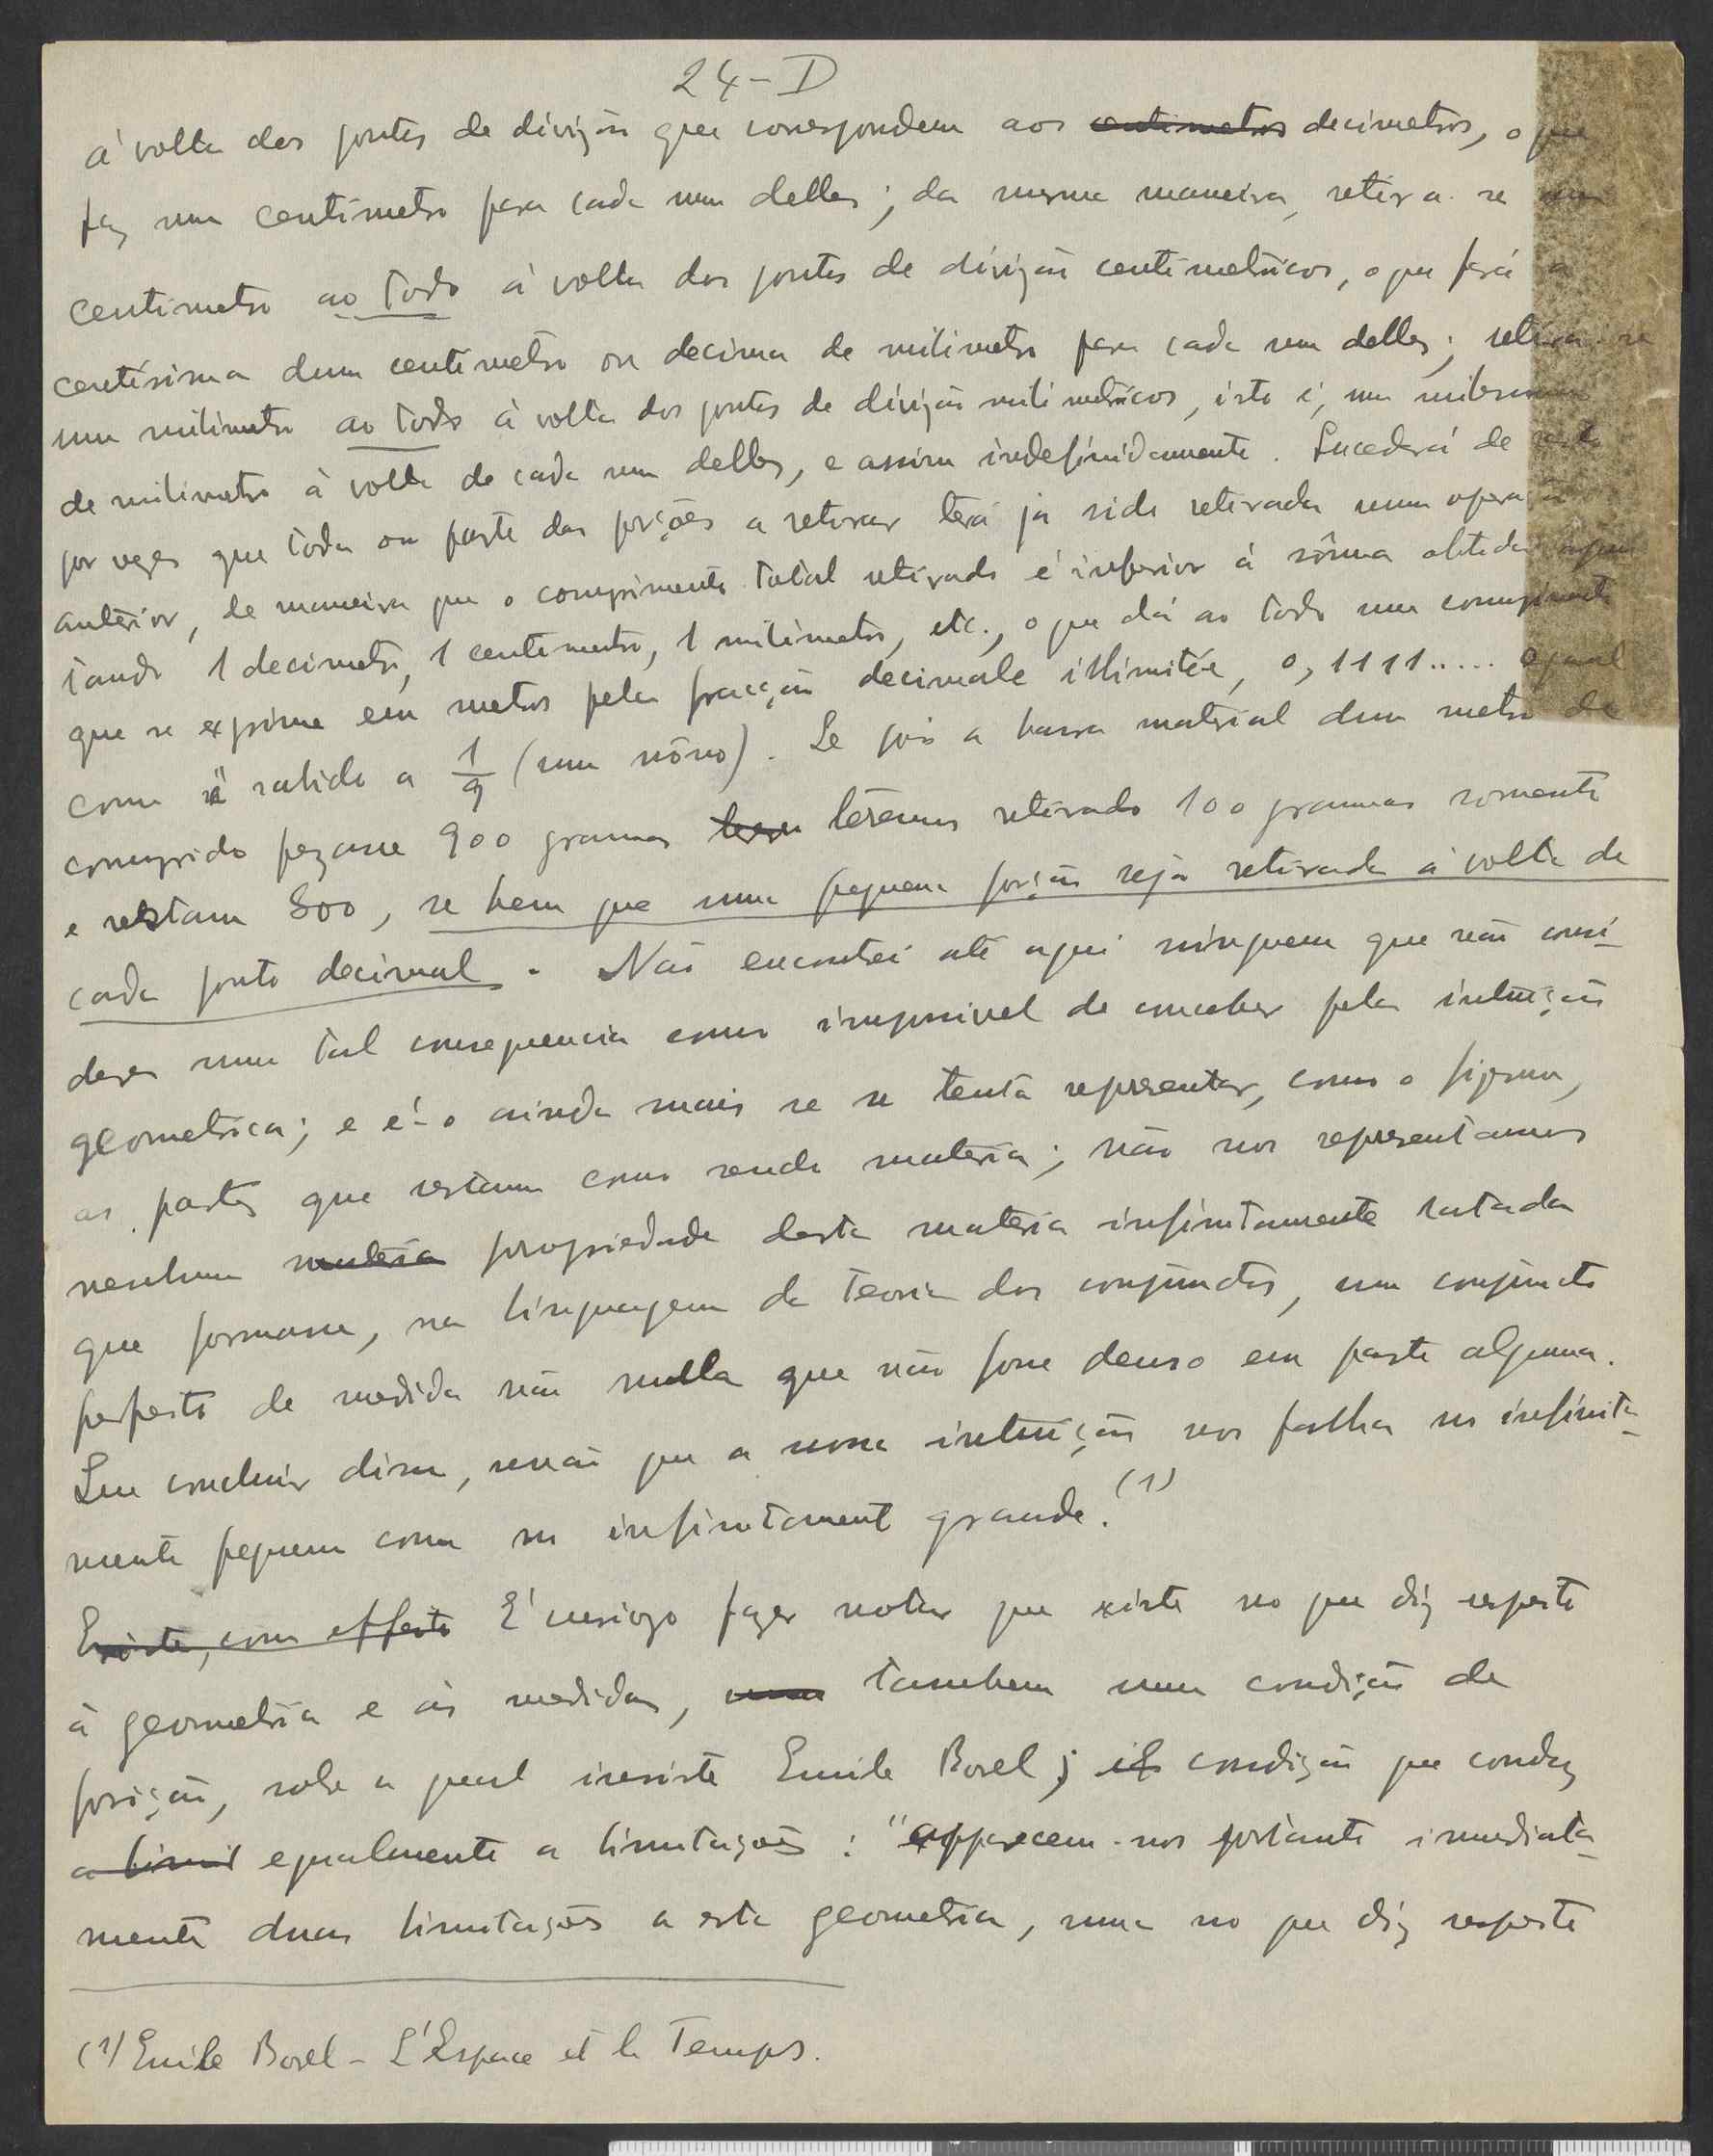 24-D
á volta dos pontos de divizão que correspondem aos centimetros decimetros, o que
faz um centimetro para cada um delles; da mesma maneira, retira-se um
centimetro ao todo á volta dos pontos de divizão centimetricos, o que fará a
centésima dum centimetro ou decima de milimetro para cada um delles; retira-se
um milimetro ao todo á volta dos pontos de divizão milimetricos, isto é, um milesimo
de milimetro á volta de cada um delles, e assim indefinidamente. Sucederá de resto
por vezes que toda ou parte das porções a retirar terá já sido retirada numa operação
anterior, de maneira que o comprimento total retirado é inferior á sôma obtida
tando 1 decimetro, 1 centimetro, 1 milimetro, etc., o que dá ao todo um comprimento
que se exprime em metros pela fracção decimale illimitée, 0,1111..... egual
como é sabido a 1/9 (um nôno). Se pois a barra material dum metro de
comprido pezasse 900 gramas terem terêmos retirado 100 grammas somente
e restam 800, se bem que uma pequena porção seja retirada á volta de
cada ponto decimal. Não encontrei até aqui ninguem que não consi-
dere uma tal consequencia como impossivel de conceber pela intuição
geometrica; e é-o ainda mais se se tenta representar, como o figuram,
as partes que restam como sendo materia; não nos representamos
nenhuma materia propriedade desta materia infinitamente cortada
que formasse, na linguagem da teoria dos conjunctos, um conjuncto
perfeito de medida não nulla que não fosse denso em parte alguma.
Que concluir disso, senão que a nossa intuição nos falha no infinita-
mente pequeno como no infinitament grande.(1)
Existe, com effeito E' preciso fazer notar que existe no que diz respeito
á geometria e ás medidas, uma tambem uma condição de
posição, sobre a qual insiste Emile Borel; condição que conduz
a limit egualmente a limitações: "apparecem-nos portanto immediata-
mente duas limitações a esta geometria, uma no que diz respeito
(1) Emile Borel - L'Espace et le Temps.